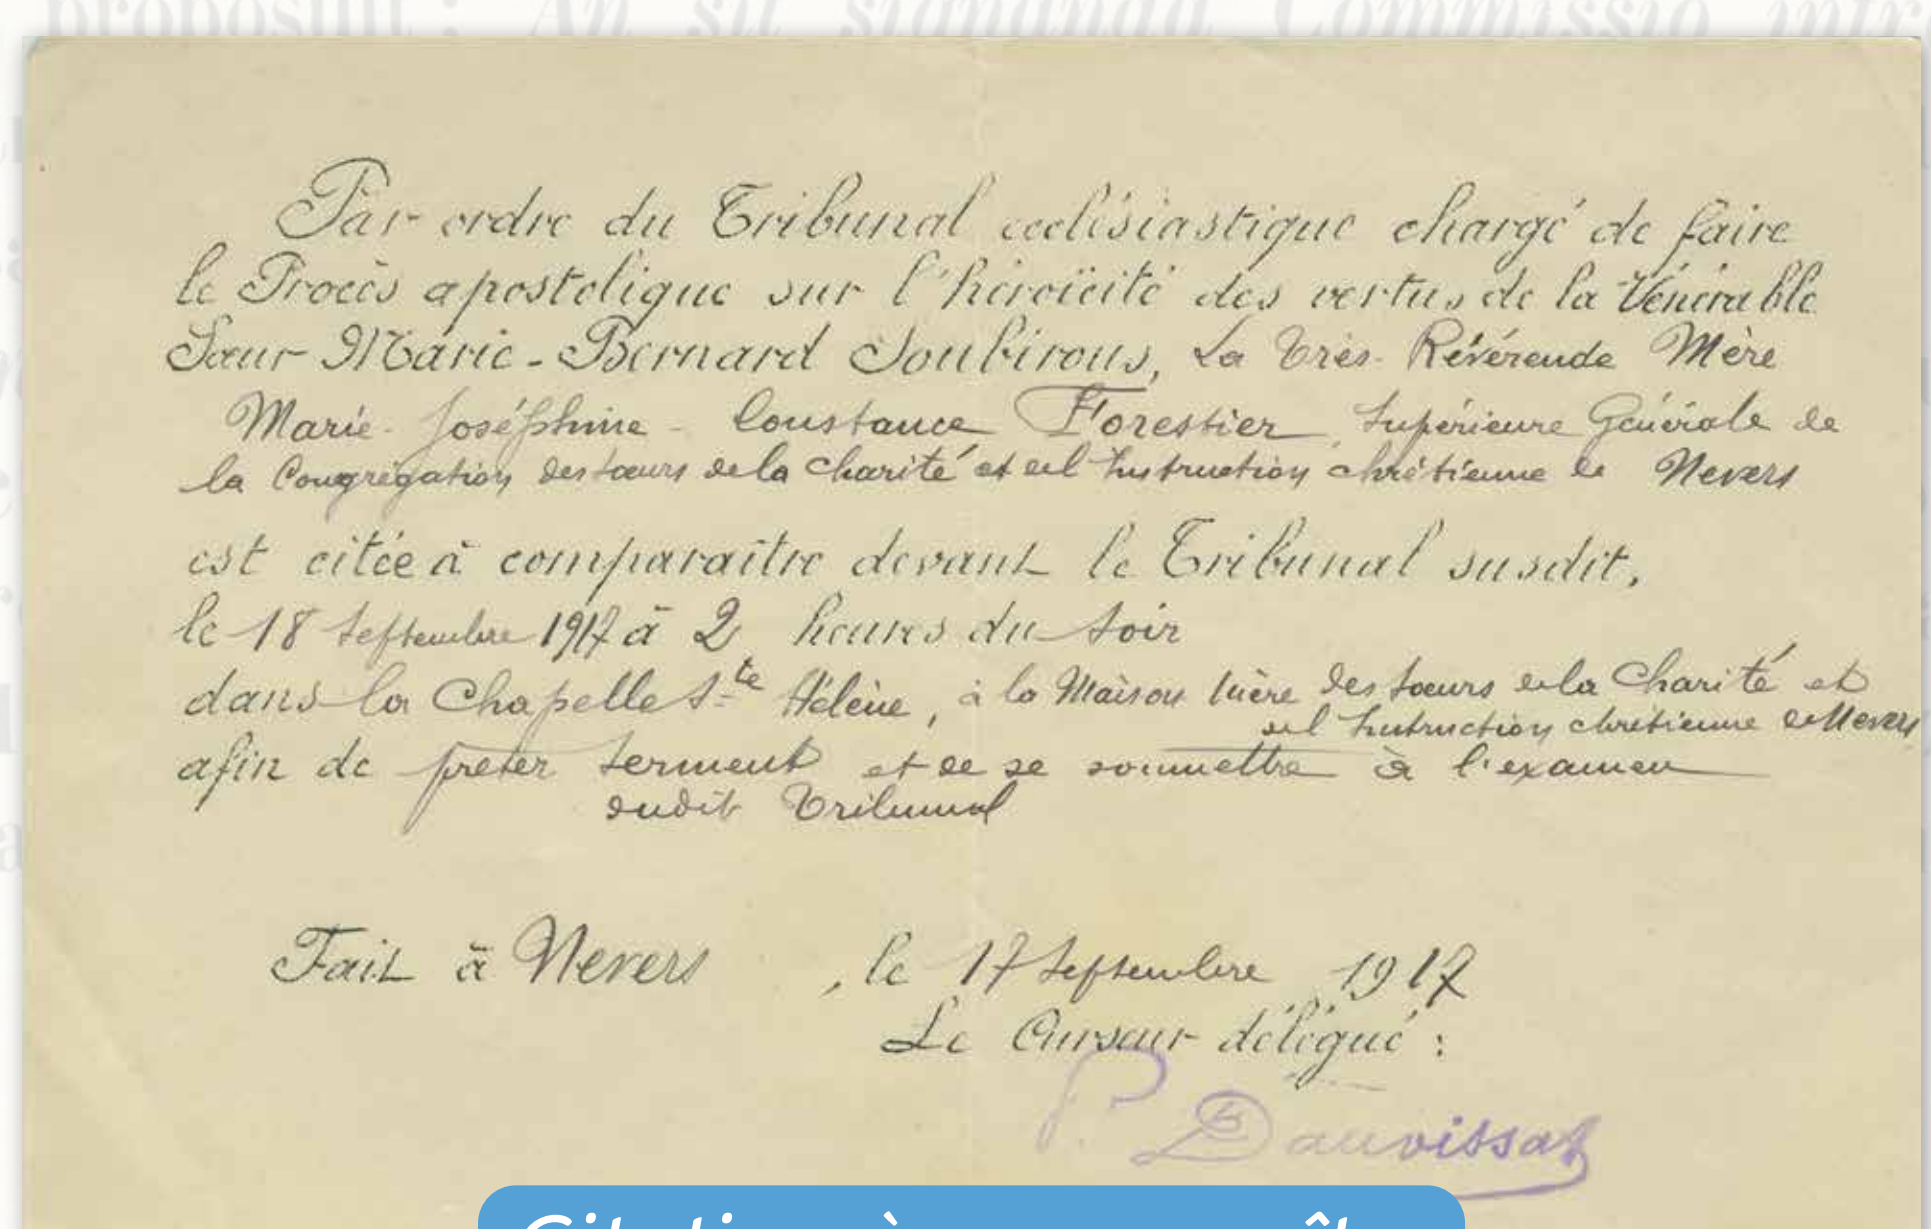 proposuit : An sit signanda Commissio intr
Par ordre du Tribunal ecclésiastique chargé de faire
le Procès apostolique sur l'héroïcité des vertus de la Vénérable
Sœur Marie-Bernard Soubirous, La Très Révérende Mère
Marie-Joséphine-Constance Forestier, Supérieure Générale de
la Congrégation des Sœurs de la Charité et de l'Instruction chrétienne de Nevers
est citée à comparaître devant le Tribunal susdit,
le 18 Septembre 1917 à 2 heures du soir
dans la Chapelle Ste Hélène, à la Maison Mère des Sœurs de la Charité et
de l'Instruction chrétienne de Nevers
afin de prêter serment et de se soumettre à l'examen
dudit Tribunal
Fait à Nevers, le 17 Septembre 1917
Le Curseur délégué :
P. Dauvissat